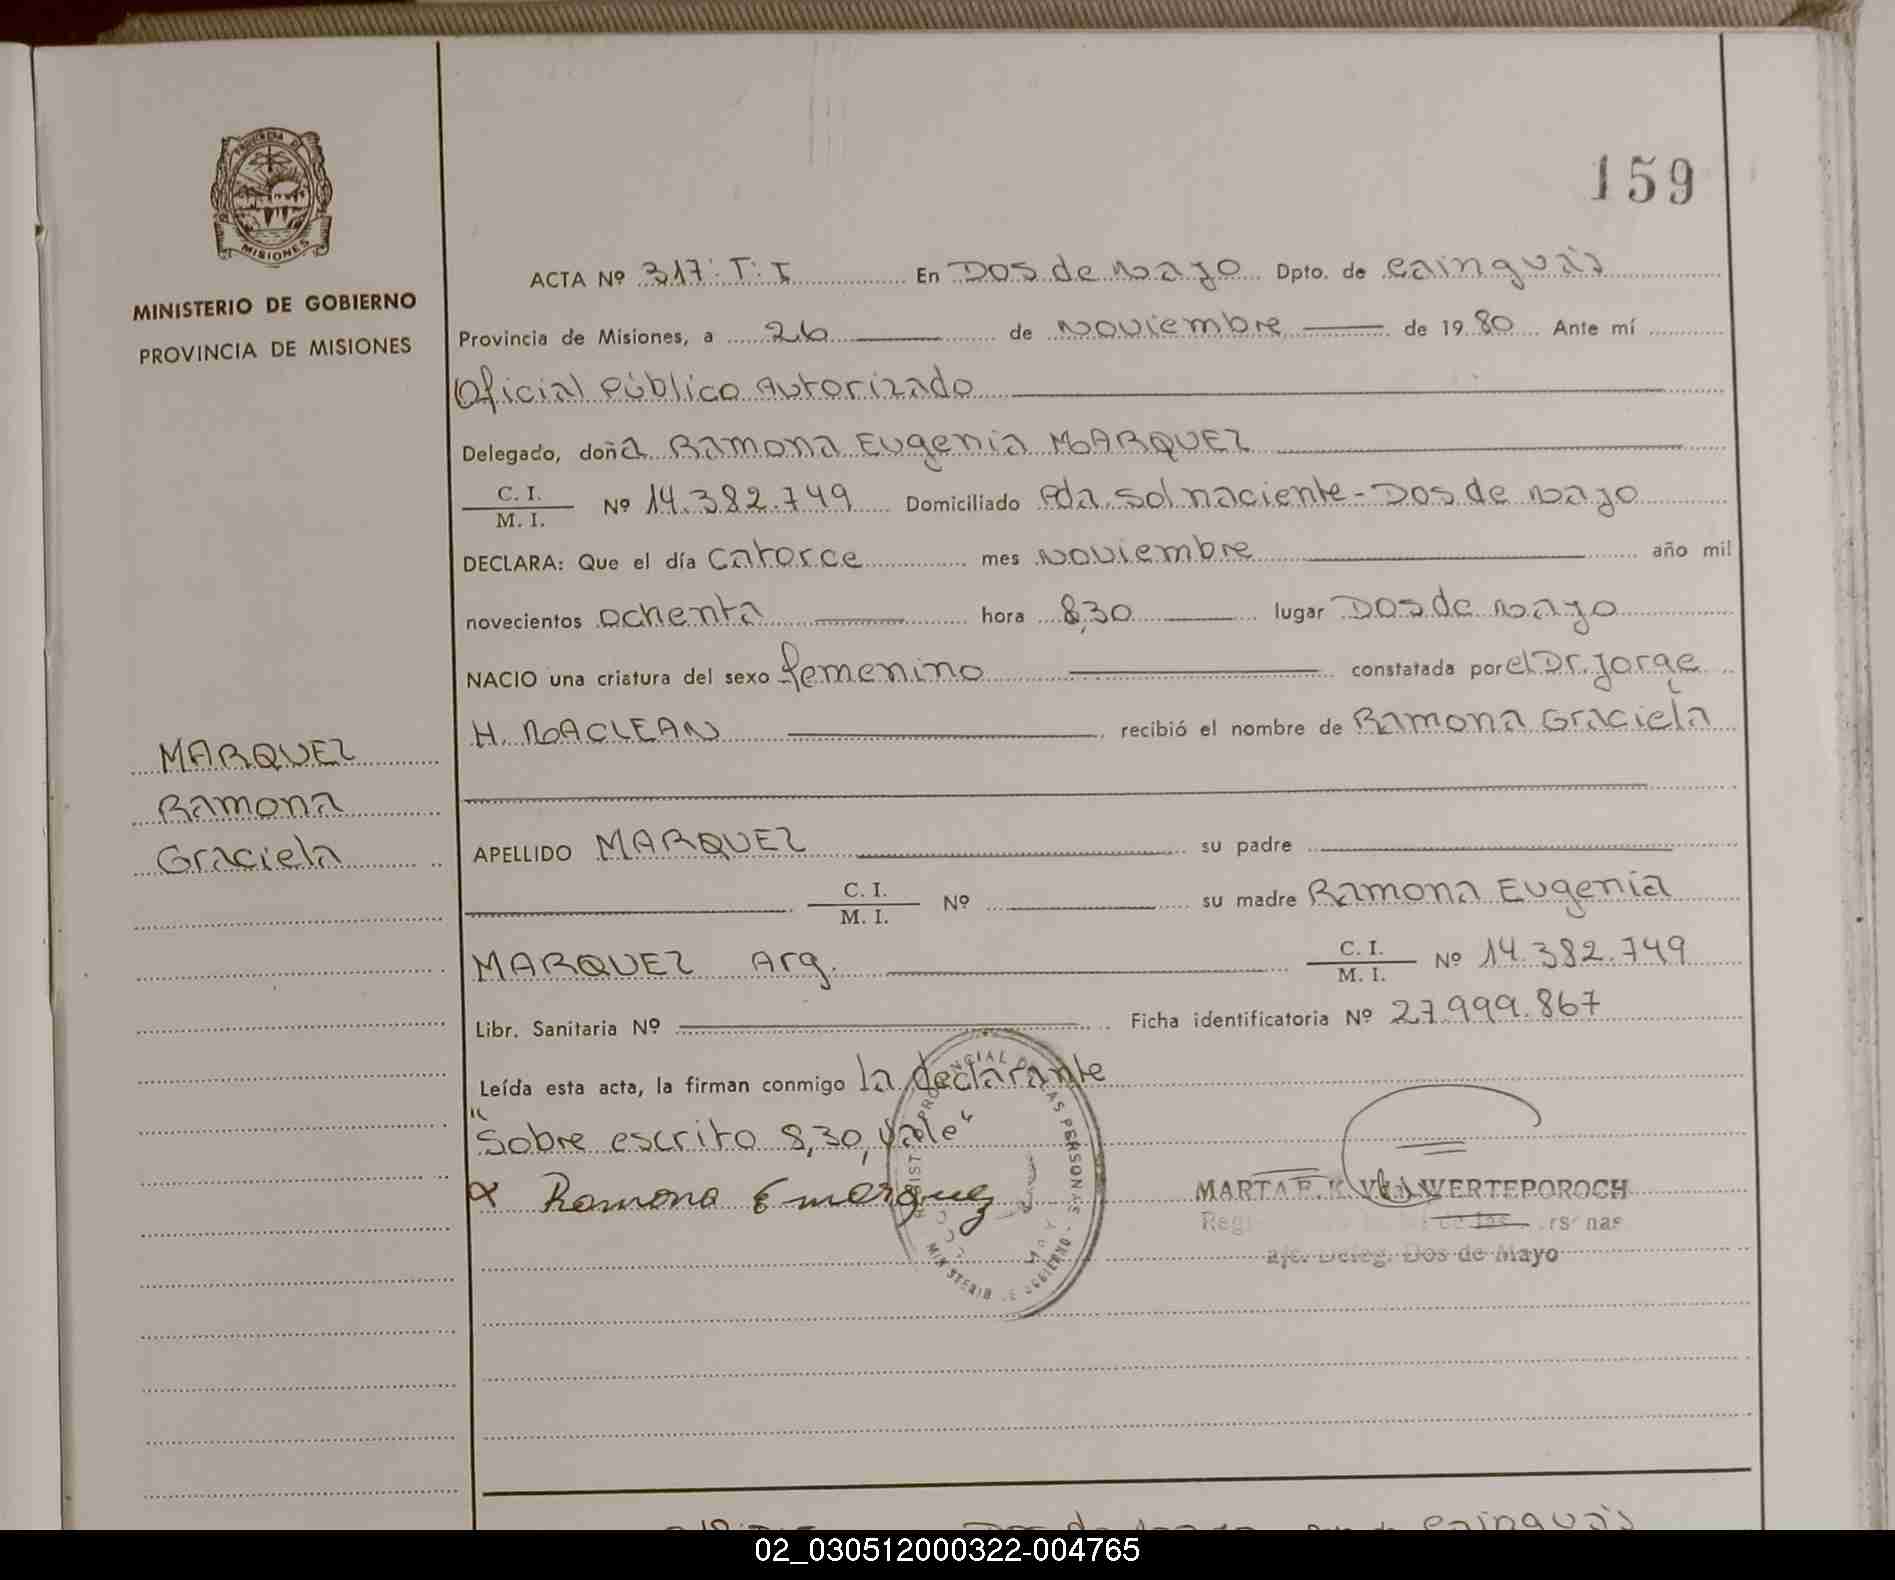 159
PROVINCIA DE
MISIONES
MINISTERIO DE GOBIERNO
PROVINCIA DE MISIONES
MARQUEZ
Ramona
Graciela
ACTA Nº 317. T. I En Dos de Mayo Dpto. de Cainguás
Provincia de Misiones, a 26 de Noviembre de 1980 Ante mí
Oficial Público Autorizado
Delegado, doña Ramona Eugenia MARQUEZ
C. I.
M. I. Nº 14.382.749 Domiciliado Pda. Sol naciente - Dos de Mayo
DECLARA: Que el día Catorce mes Noviembre año mil
novecientos ochenta hora 8,30 lugar Dos de Mayo
NACIO una criatura del sexo femenino constatada por el Dr. Jorge
H. MACLEAN recibió el nombre de Ramona Graciela
APELLIDO MARQUEZ su padre
C. I.
M. I. Nº su madre Ramona Eugenia
MARQUEZ Arg. C. I.
M. I. Nº 14.382.749
Libr. Sanitaria Nº Ficha identificatoria Nº 27.999.867
Leída esta acta, la firman conmigo la declarante
"Sobre escrito 8,30, Vale"
Ramona E Marquez
MARTA E. K. WERTEPOROCH
Deleg. Dos de Mayo
PROVINCIAL DE LAS PERSONAS
MINISTERIO DE GOBIERNO
Dos de Mayo Cainguás
02_030512000322-004765